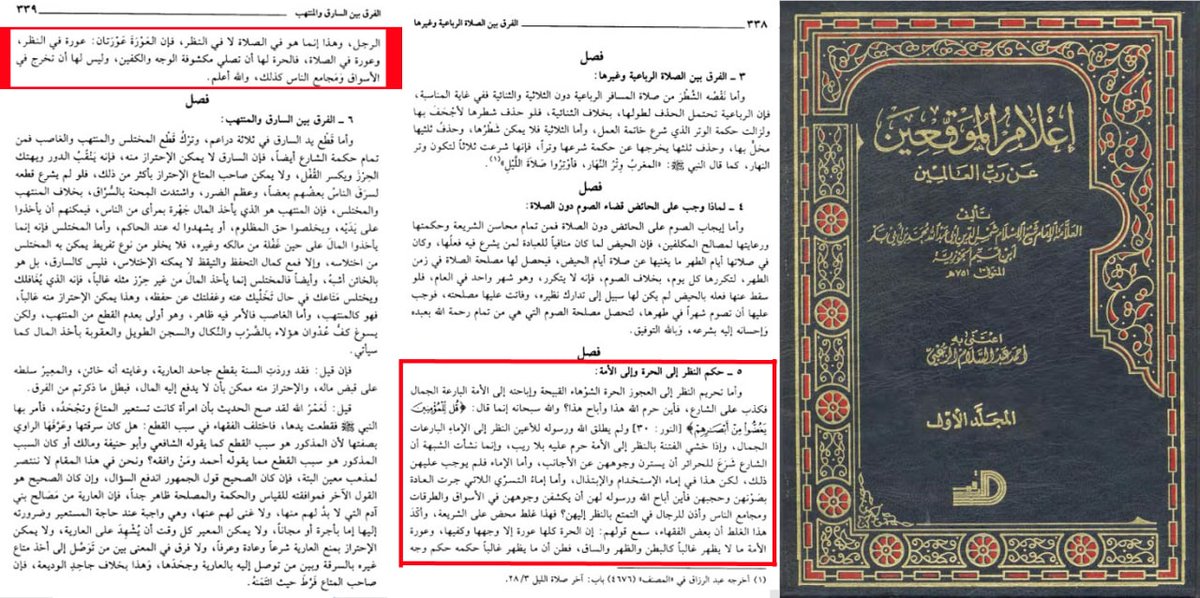 إعلام الموقعين
عن رب العالمين
تأليف
ابن قيم الجوزية
المتوفى ٧٥١هـ
اعتنى به
أحمد عبد السلام الزعبي
المجلد الأول
٣٣٨
الفرق بين الصلاة الرباعية وغيرها
فصل
٣ ـ الفرق بين الصلاة الرباعية وغيرها:
وأما نَقْصُه الشَّطْرَ من صلاة المسافر الرباعية دون الثلاثية والثنائية ففي غاية المناسبة،
فإن الرباعية تحتمل الحذف لطولها، بخلاف الثنائية، فلو حذف شطرها لأجْحَف بها
ولزالت حكمة الوتر الذي شرع خاتمة العمل، وأما الثلاثية فلا يمكن شَطْرُها، وحذف ثلثيها
مخلّ بها، وحذف ثلثها يخرجها عن حكمة شرعها وتراً، فإنها شرعت ثلاثاً لتكون وتر
النهار، كما قال النبي ﷺ: «المغرب وِتْرُ النَّهار، فأوْتِرُوا صَلاَةَ اللَّيْلِ»(١).
فصل
٤ ـ لماذا وجب على الحائض قضاء الصوم دون الصلاة:
وأما إيجاب الصوم على الحائض دون الصلاة فمن تمام محاسن الشريعة وحكمتها
ورعايتها لمصالح المكلفين، فإن الحيض لما كان منافياً للعبادة لمن يشرع فيه فعلُها، وكان
في صلاتها أيام الطهر ما يغنيها عن صلاة أيام الحيض، فيحصل لها مصلحة الصلاة في زمن
الطهر، لتكررها كل يوم، بخلاف الصوم، فإنه لا يتكرر، وهو شهر واحد في العام، فلو
سقط عنها فعله بالحيض لم يكن لها سبيل إلى تدارك نظيره، وفاتت عليها مصلحته، فوجب
عليها أن تصوم شهراً في طهرها، لتحصل مصلحة الصوم التي هي من تمام رحمة الله بعبده
وإحسانه إليه بشرعه، وبالله التوفيق.
فصل
٥ ـ حكم النظر إلى الحرة وإلى الأمة:
وأما تحريم النظر إلى العجوز الحرة الشَّوْهَاء القبيحة وإباحته إلى الأمة البارعة الجمال
فكذب على الشارع، فأين حرم الله هذا وأباح هذا؟ والله سبحانه إنما قال: ﴿قُل لِّلْمُؤْمِنِينَ
يَغُضُّوا مِنْ أَبْصَارِهِمْ﴾ [النور: ٣٠] ولم يطلق الله ورسوله للأعين النظر إلى الإماء البارعات
الجمال، وإذا خشي الفتنة بالنظر إلى الأمة حرم عليه بلا ريب، وإنما نشأت الشبهة أن
الشارع شَرَعَ للحرائر أن يسترن وجوههن عن الأجانب، وأما الإماء فلم يوجب عليهن
ذلك، لكن هذا في إماء الإستخدام والإبتذال، وأما إماءُ التسرِّي اللاتي جرت العادة
بصَوْنهن وحجبهن فأين أباح الله ورسوله لهن أن يكشفن وجوههن في الأسواق والطرقات
ومجامع الناس وأذن للرجال في التمتع بالنظر إليهن؟ فهذا غلط محض على الشريعة، وأكّدَ
هذا الغلط أن بعض الفقهاء، سمع قولهم: إن الحرة كلها عورة إلا وجهها وكفيها، وعورة
الأمة ما لا يظهر غالباً كالبطن والظهر والساق، فظن أن ما يظهر غالباً حكمه حكم وجه
(١) أخرجه عبد الرزاق في «المصنف» (٤٦٧٦) باب: آخر صلاة الليل ٢٨/٣.
الفرق بين السارق والمنتهب
٣٣٩
الرجل، وهذا إنما هو في الصلاة لا في النظر، فإن العَوْرَة عَوْرَتان: عورة في النظر،
وعورة في الصلاة، فالحرة لها أن تصلي مكشوفة الوجه والكفين، وليس لها أن تخرج في
الأسواق ومَجَامع الناس كذلك، والله أعلم.
فصل
٦ ـ الفرق بين السارق والمنتهب:
وأما قطع يد السارق في ثلاثة دراعم، وتركُ قَطْع المختلس والمنتهب والغاصب فمن
تمام حكمة الشارع أيضاً، فإن السارق لا يمكن الإحتراز منه، فإنه يَنْقُبُ الدور ويهتك
الحِرْزَ ويكسر القُفْل، ولا يمكن صاحب المتاع الإحتراز بأكثر من ذلك، فلو لم يشرع قطعه
لسرَق الناسُ بعضُهم بعضاً، وعظم الضرر، واشتدت المِحنة بالسُّرَّاق، بخلاف المنتهب
والمختلس، فإن المنتهب هو الذي يأخذ المال جَهْرة بمرأى من الناس، فيمكنهم أن يأخذوا
على يَدَيْه، ويخلصوا حق المظلوم، أو يشهدوا له عند الحاكم، وأما المختلس فإنه إنما
يأخذوا المالَ على حين غَفْلة من مالكه وغيره، فلا يخلو من نوع تفريط يمكن به المختلس
من اختلاسه، وإلا فمع كمال التحفظ والتيقظ لا يمكنه الإختلاس، فليس كالسارق، بل هو
بالخائن أشبهُ، وأيضاً فالمختلس إنما يأخذ المالَ من غير حِرْز مثله غالباً، فإنه الذي يُغَافلك
ويختلس مَتَاعك في حال تَخَلِّيك عنه وغفلتك عن حفظه، وهذا يمكن الإحتراز منه غالباً،
فهو كالمنتهب، وأما الغاصب فالأمر فيه ظاهر، وهو أولى بعدم القطع من المنتهب، ولكن
يسوغ كفُّ عُدْوان هؤلاء بالضَّرْب والنَّكَال والسجن الطويل والعقوبة بأخذ المال كما
سيأتي.
فإن قيل: فقد وردَتِ السنة بقطع جاحد العارية، وغايته أنه خائن، والمعِيرُ سلطه
على قبض ماله، والإحتراز منه ممكن بأن لا يدفع إليه المال، فبطل ما ذكرتم من الفرق.
قيل: لَعَمْرُ الله لقد صح الحديث بأن امرأة كانت تستعير المتاعَ وتَجْحَدُه، فأمر بها
النبي ﷺ فقطعت يدها، فاختلف الفقهاء في سبب القطع: هل كان سرقتها وعَرَّفها الراوي
بصفتها لأن المذكور هو سبب القطع كما يقوله الشافعي وأبو حنيفة ومالك أو كان السبب
المذكور هو سبب القطع كما يقوله أحمد ومَنْ وافقه؟ ونحن في هذا المقام لا ننتصر
لمذهب معين البتة، فإن كان الصحيح قول الجمهور اندفع السؤال، وإن كان الصحيح هو
القول الآخر فموافقته للقياس والحكمة والمصلحة ظاهر جداً، فإن العارية من مَصَالح بني
آدم التي لا بدَّ لهم منها، ولا غنى لهم عنها، وهي واجبة عند حاجة المستعير وضرورته
إليها إما بأجرة أو مجاناً، ولا يمكن المعير كل وقت أن يُشْهِدَ على العارية، ولا يمكن
الإحتراز بمنع العارية شرعاً وعادة وعرفاً، ولا فرق في المعنى بين من تَوَصَّل إلى أخذ متاع
غيره بالسرقة وبين من توصل إليه بالعارية وجَحَدها، وهذا بخلاف جاحدِ الوديعة، فإن
صاحب المتاع فَرَّطَ حيث ائتَمَنَهُ.